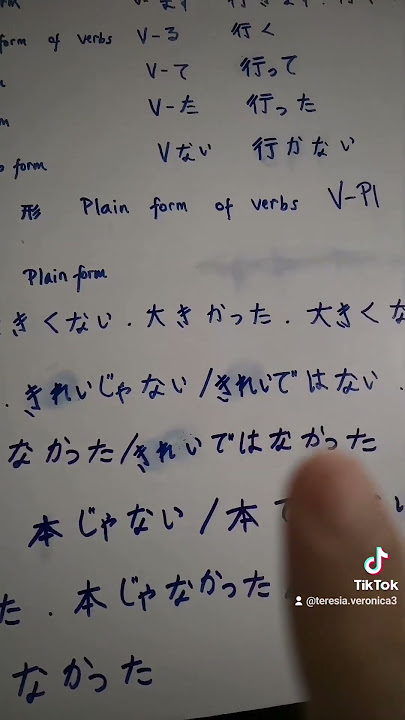 form of verbs V-る 行く
V-て 行って
V-た 行った
form Vない 行かない
形 Plain form of verbs V-Pl
Plain form
きくない. 大きかった. 大きくな
. きれいじゃない/きれいではない.
なかった/きれいではなかった
本じゃない/本で い
た. 本じゃなかった
なかった
TikTok
@teresia.veronica3